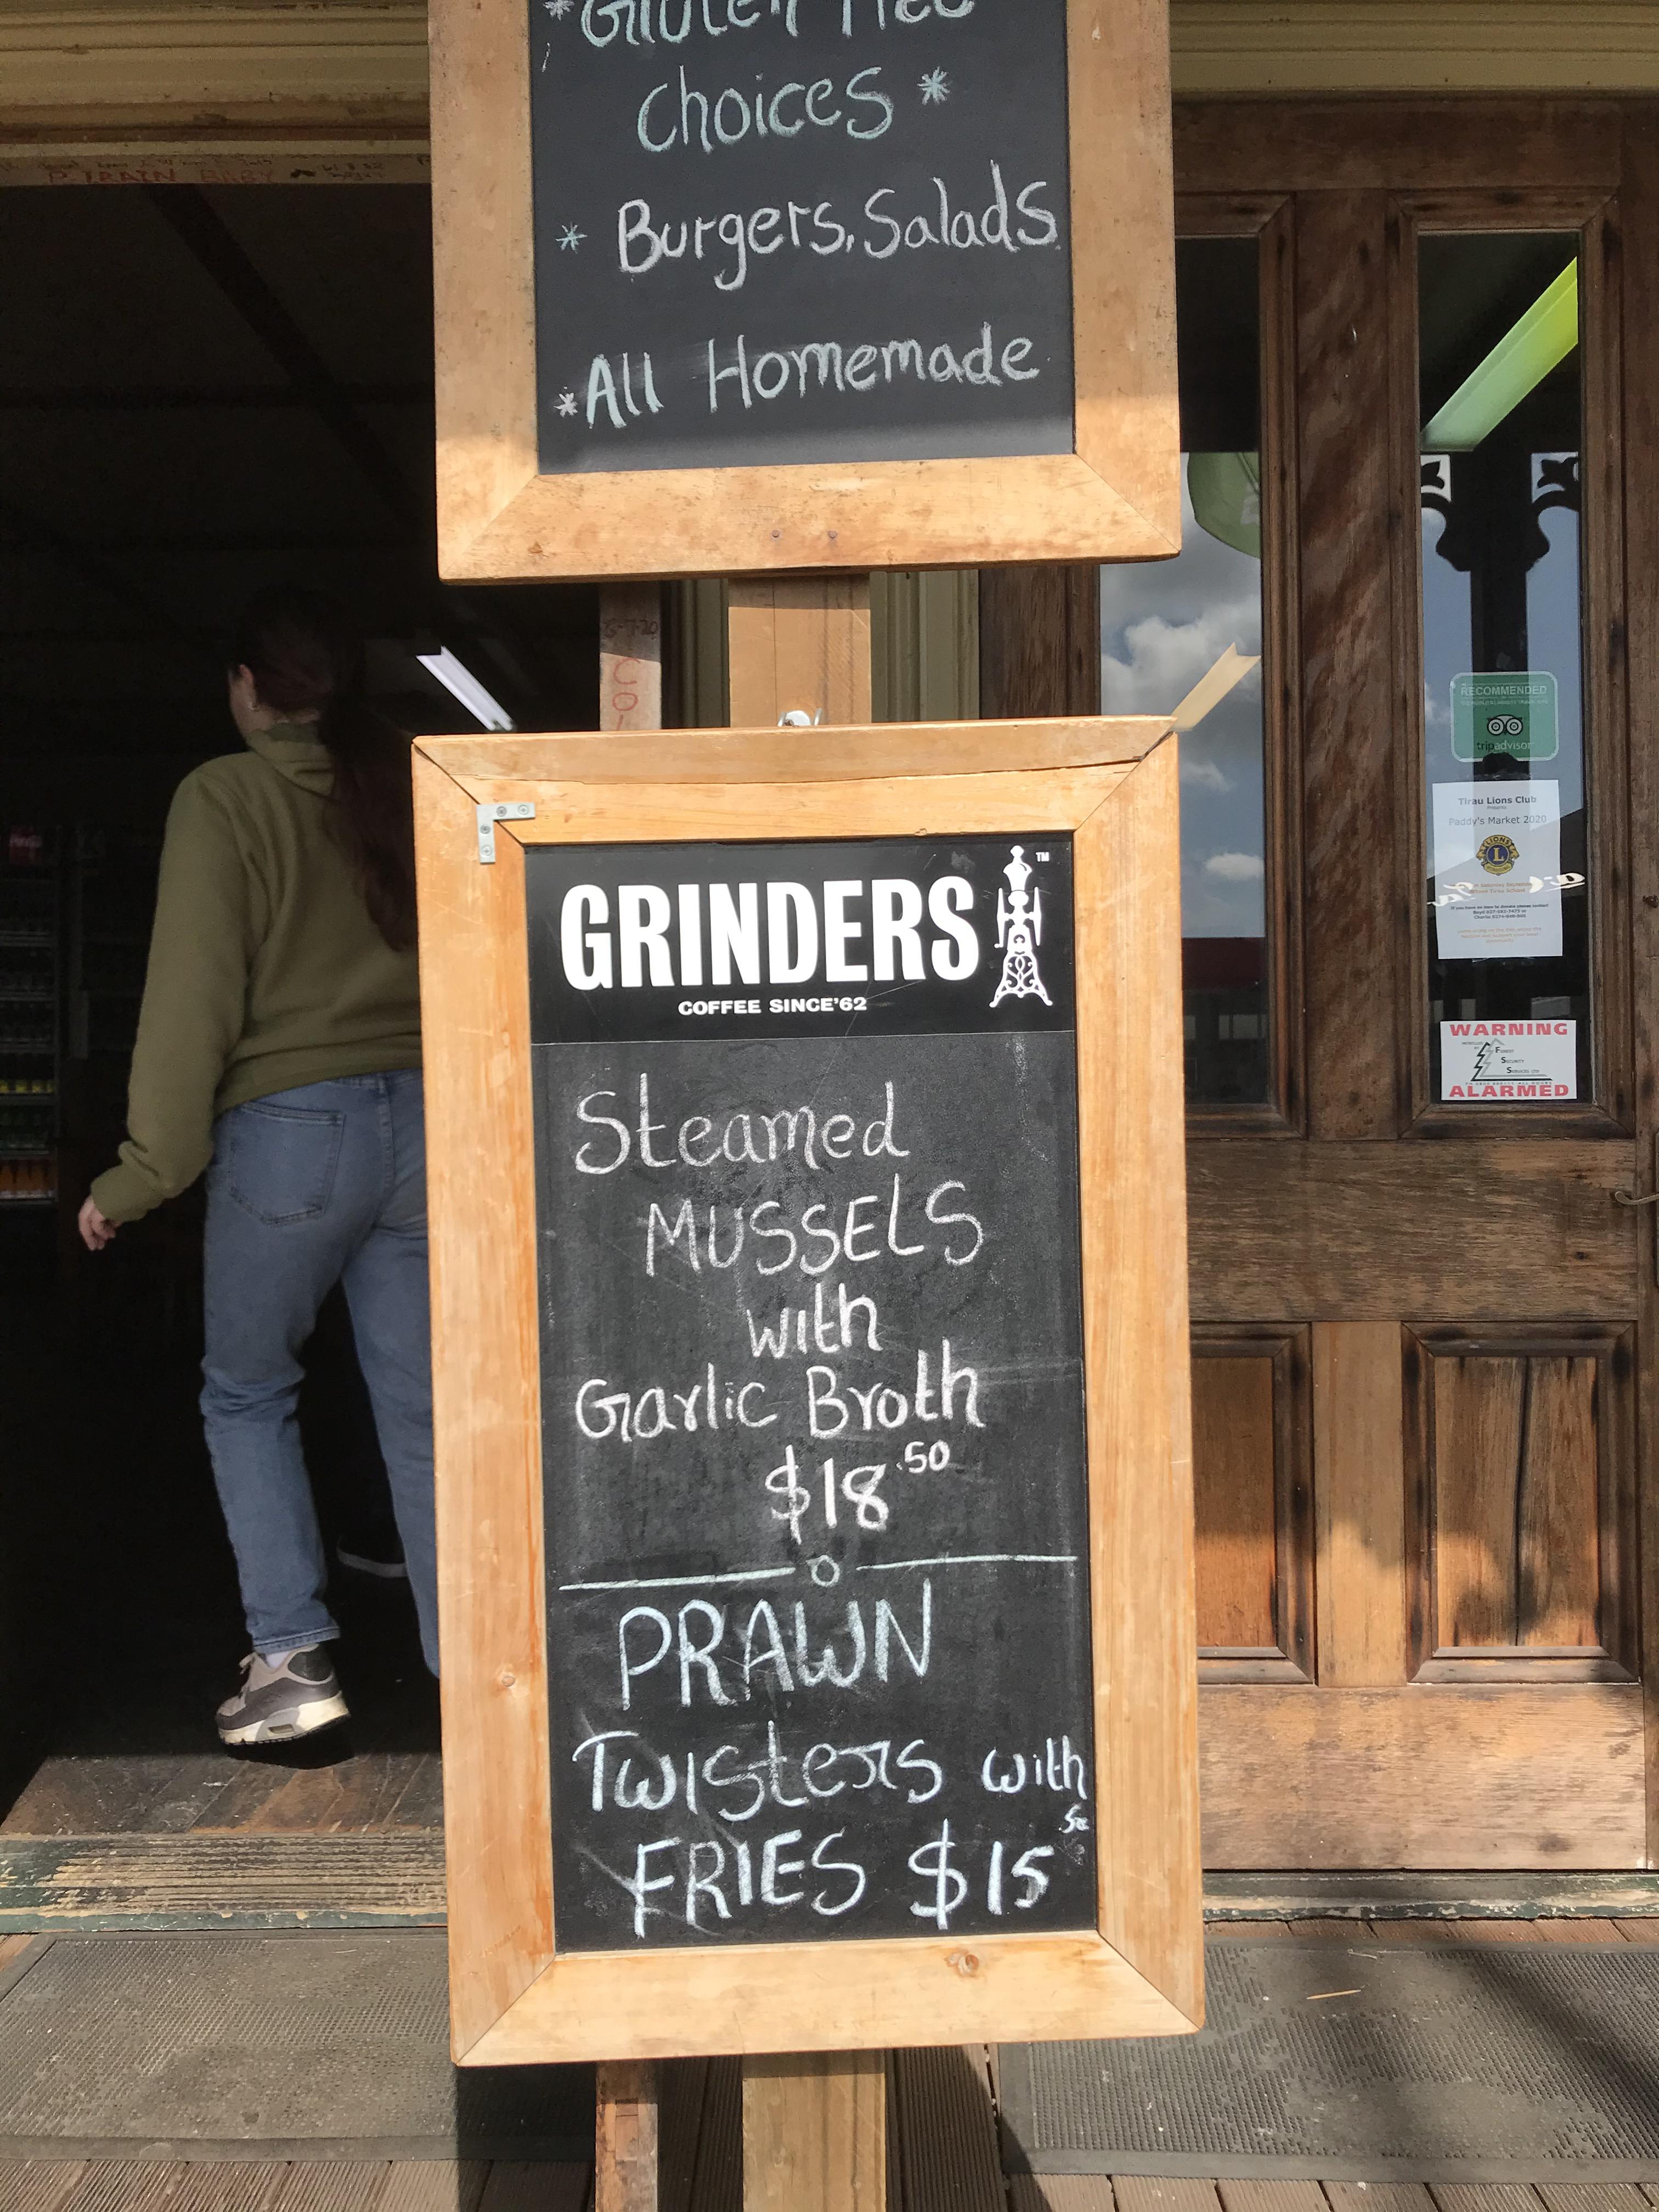 *Gluten Free
Choices *
* Burgers, Salads
*All Homemade
GRINDERS
TM
COFFEE SINCE'62
Steamed
MUSSELS
with
Garlic Broth
$18.50
PRAWN
Twisters with
FRIES $15.50
RECOMMENDED
tripadvisor
Tirau Lions Club
Presents
Paddy's Market 2020
LIONS
L
WARNING
FOREST
SECURITY
SERVICES LTD
ALARMED